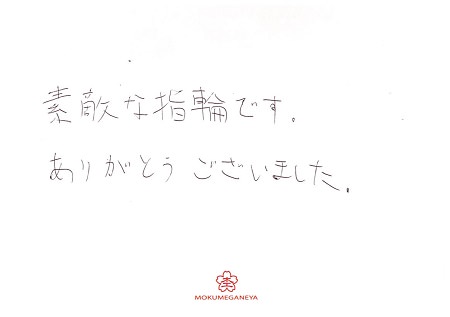 素敵な指輪です。
ありがとう ございました。
MOKUMEGANEYA